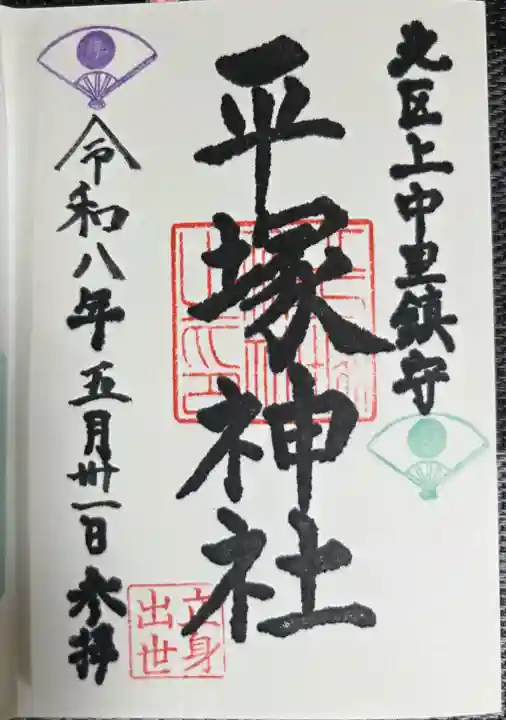 北区上中里鎮守
平塚神社
令和八年五月卅一日 参拝
立身
出世